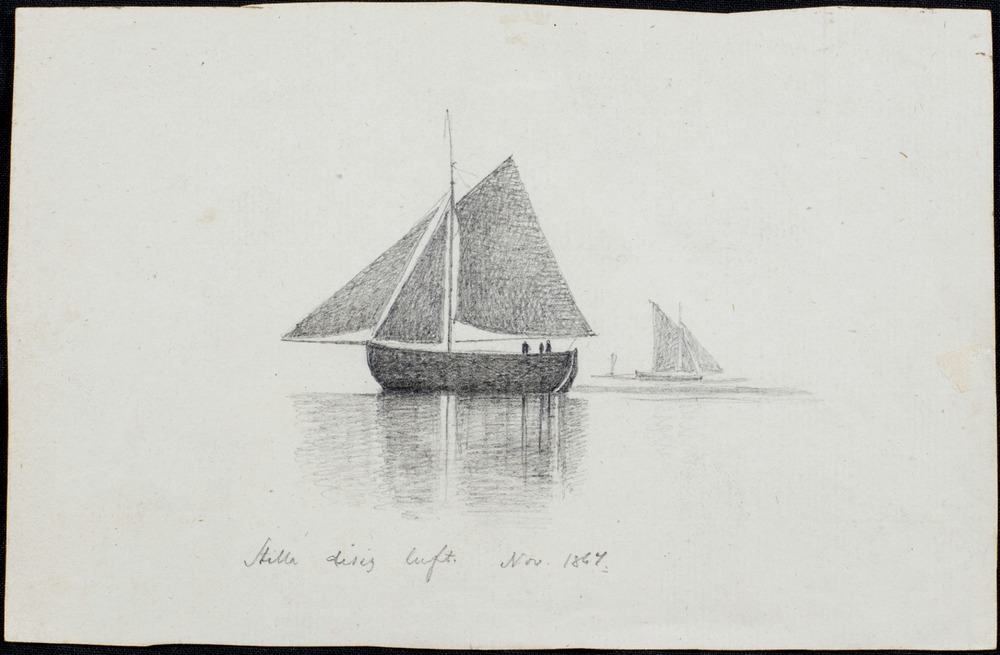 Stilla disig luft. Nov. 1867.